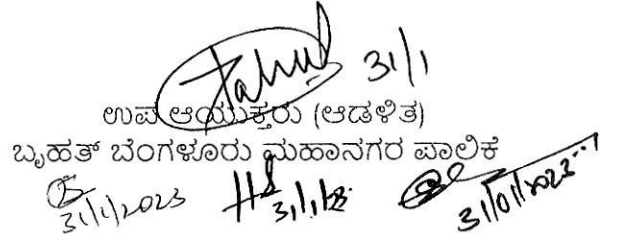 31/1
ಉಪ ಆಯುಕ್ತರು (ಆಡಳಿತ)
ಬೃಹತ್ ಬೆಂಗಳೂರು ಮಹಾನಗರ ಪಾಲಿಕೆ
31/1/2023 31/1/23 31/01/2023